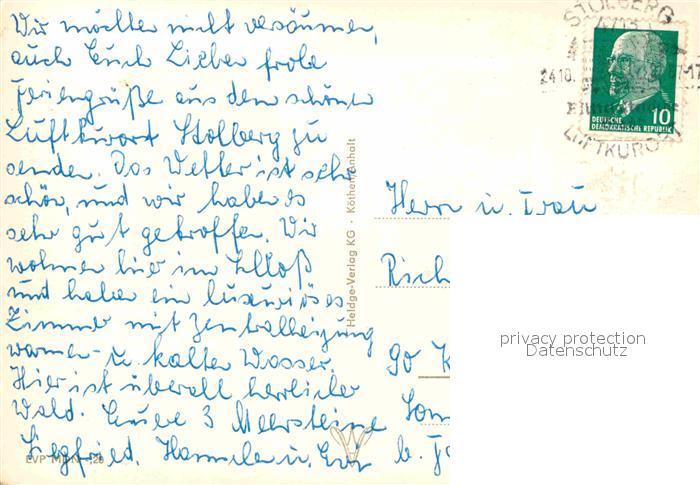 Wir möchten nicht versäumen,
auch Euch Lieben frohe
Feriengrüße aus dem schönen
Luftkurort Stolberg zu
senden. Das Wetter ist sehr
schön, und wir haben es
sehr gut getroffen. Wir
wohnen hier im Schloß
und haben ein luxuriöses
Zimmer mit Zentralheizung
warmen- u. kalten Wasser.
Hier ist überall herrlicher
Wald. Eure 3 Meersteine
Siegfried, Hannele u.
EVP MDN -,20
Heldge-Verlag KG · Köthen-Anhalt
STOLBERG
4713
24.10.
LUFTKURORT
10
DEUTSCHE
DEMOKRATISCHE REPUBLIK
Herrn u. Frau
Rich
90 K
b.
privacy protection
Datenschutz